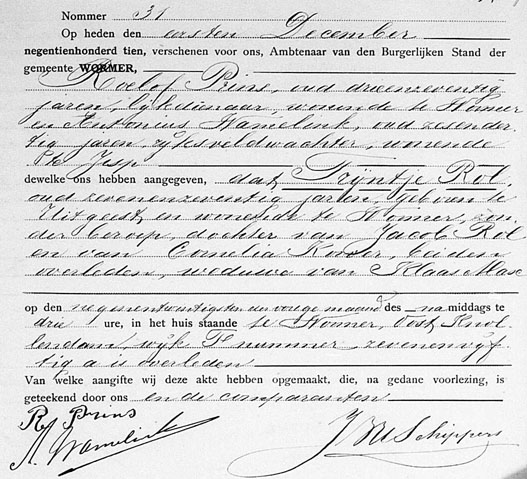 Nommer 31
Op heden den eersten December
negentienhonderd tien, verschenen voor ons, Ambtenaar van den Burgerlijken Stand der
gemeente WORMER,
Roelof Prins, oud drieenzeventig
jaren, lijkdienaar, wonende te Wormer
en Antonius Wamelink, oud zesender
tig jaren, rijksveldwachter, wonende
te Jisp
dewelke ons hebben aangegeven, dat Trijntje Rol,
oud zevenenzeventig jaren, geboren te
Uitgeest en wonende te Wormer, zon
der beroep, dochter van Jacob Rol
en van Cornelia, beiden
overleden, weduwe van Klaas Mase
op den negenentwintigsten der vorige maand des namiddags te
drie ure, in het huis staande te Wormer, Oost Knol
lendam, wijk F nummer, zevenenvijf
tig a is overleden
Van welke aangifte wij deze akte hebben opgemaakt, die, na gedane voorlezing, is
geteekend door ons en de comparanten
R. Prins
A. Wamelink
Schippers